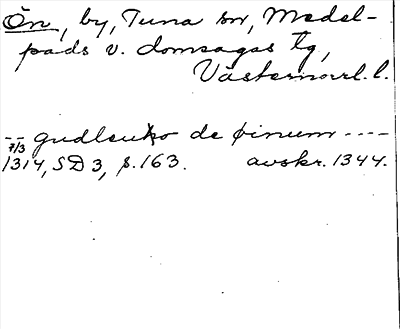 Ön, by, Tuna sn, Medel-
pads v. domsagas tg,
Västernorrl. l.
-- gudleuko de øinum ----
7/3
1314, SD 3, s. 163. avskr. 1344.